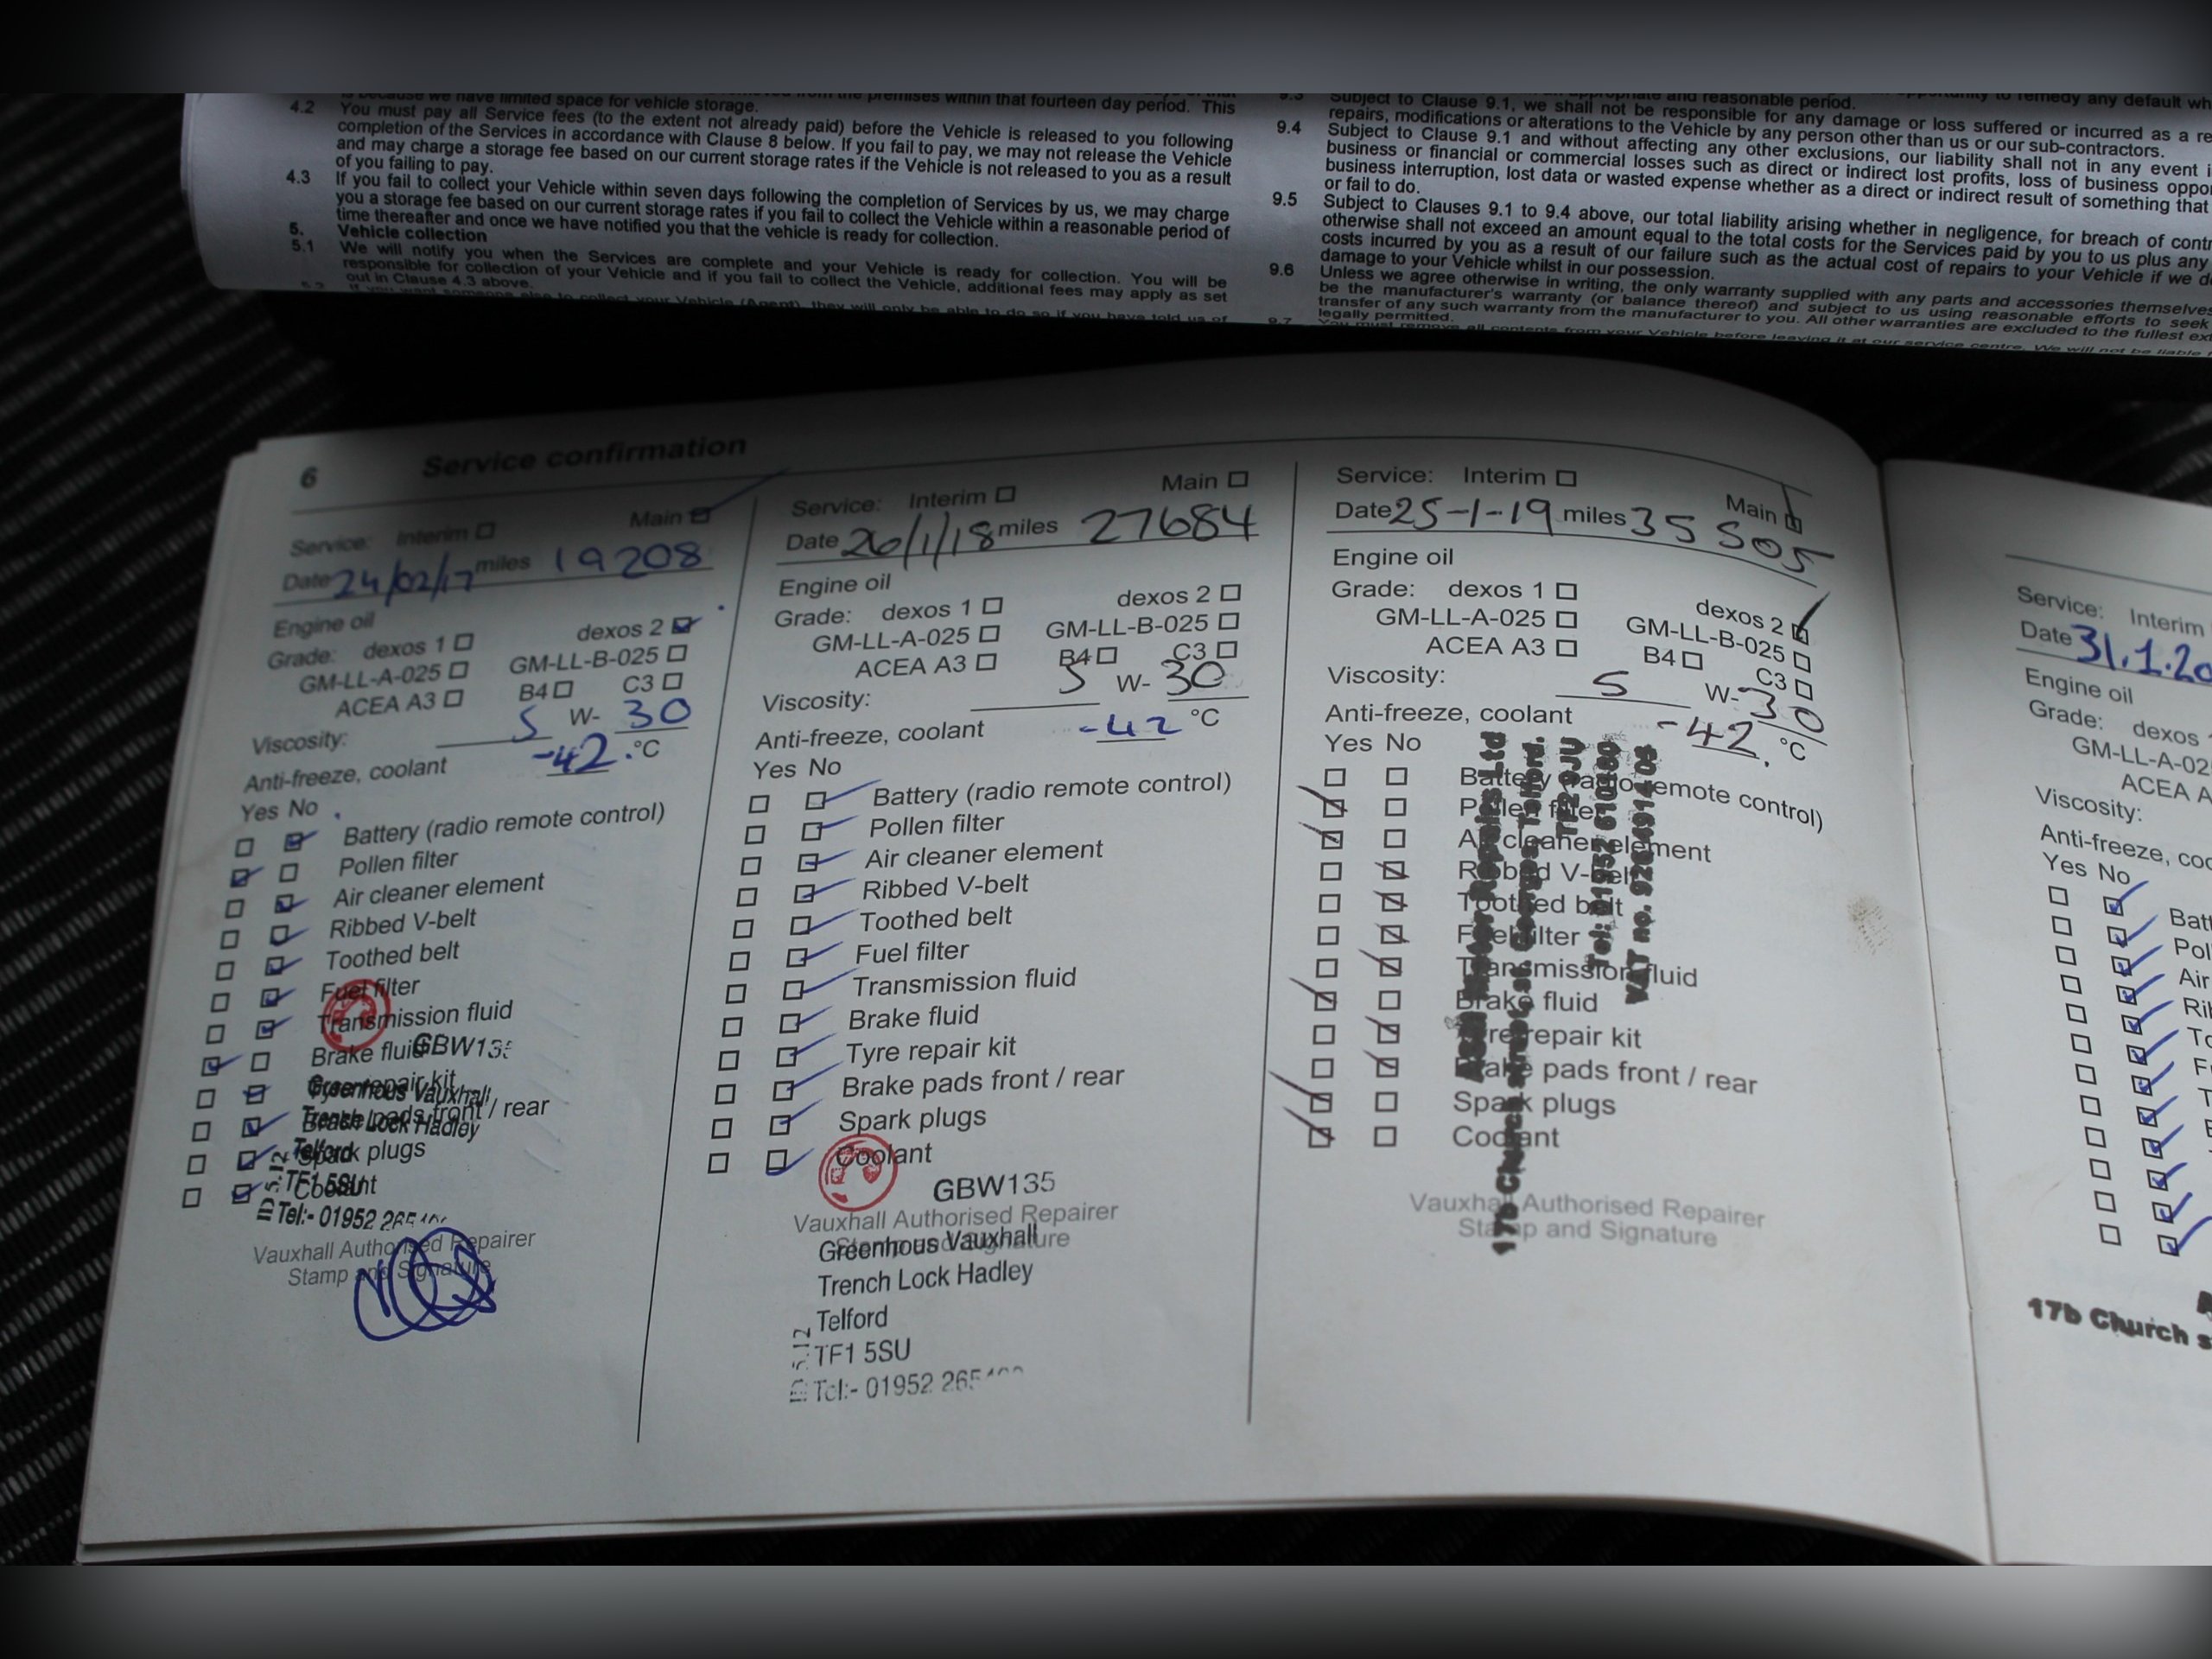 4.2 You must pay all Service fees (to the extent not already paid) before the Vehicle is released to you following
is because we have limited space for vehicle storage.
the premises within that fourteen day period. This
completion of the Services in accordance with Clause 8 below. If you fail to pay, we may not release the Vehicle
and may charge a storage fee based on our current storage rates if the Vehicle is not released to you as a result
of you failing to pay.
4.3 If you fail to collect your Vehicle within seven days following the completion of Services by us, we may charge
you a storage fee based on our current storage rates if you fail to collect the Vehicle within a reasonable period of
time thereafter and once we have notified you that the vehicle is ready for collection.
5. Vehicle collection
5.1 We will notify you when the Services are complete and your Vehicle is ready for collection. You will be
responsible for collection of your Vehicle and if you fail to collect the Vehicle, additional fees may apply as set
out in Clause 4.3 above.
9.3 Subject to Clause 9.1, we shall not be responsible for any damage or loss suffered or incurred as a
repairs, modifications or alterations to the Vehicle by any person other than us or our sub-contractors.
9.4 Subject to Clause 9.1 and without affecting any other exclusions, our liability shall not in any event
business or financial or commercial losses such as direct or indirect lost profits, loss of business
business interruption, lost data or wasted expense whether as a direct or indirect result of something that
or fail to do.
9.5 Subject to Clauses 9.1 to 9.4 above, our total liability arising whether in negligence, for breach of
otherwise shall not exceed an amount equal to the total costs for the Services paid by you to us plus any
costs incurred by you as a result of our failure such as the actual cost of repairs to your Vehicle if we
damage to your Vehicle whilst in our possession.
9.6 Unless we agree otherwise in writing, the only warranty supplied with any parts and accessories themselves
be the manufacturer's warranty (or balance thereof) and subject to us using reasonable efforts to seek
transfer of any such warranty from the manufacturer to you. All other warranties are excluded to the fullest
legally permitted.
9.7 You must remove all contents from your Vehicle before leaving it at our service centre. We will not be liable
6 Service confirmation
Service: Interim Main
Date 24/02/17 miles 19208
Engine oil
Grade: dexos 1 dexos 2
GM-LL-A-025 GM-LL-B-025
ACEA A3 B4 C3
Viscosity: 5 W- 30
Anti-freeze, coolant -42 °C
Yes No
Battery (radio remote control)
Pollen filter
Air cleaner element
Ribbed V-belt
Toothed belt
Fuel filter
Transmission fluid
Brake fluid
GBW135
Tyre repair kit
Greenhous Vauxhall
Brake pads front / rear
Trench Lock Hadley
Telford
Spark plugs
TF1 5SU
Coolant
Tel:- 01952 265
Vauxhall Authorised Repairer
Stamp and Signature
Service: Interim Main
Date 26/1/18 miles 27684
Engine oil
Grade: dexos 1 dexos 2
GM-LL-A-025 GM-LL-B-025
ACEA A3 B4 C3
Viscosity: 5 W- 30
Anti-freeze, coolant -42 °C
Yes No
Battery (radio remote control)
Pollen filter
Air cleaner element
Ribbed V-belt
Toothed belt
Fuel filter
Transmission fluid
Brake fluid
Tyre repair kit
Brake pads front / rear
Spark plugs
Coolant
GBW135
Vauxhall Authorised Repairer
Stamp and Signature
Greenhous Vauxhall
Trench Lock Hadley
Telford
TF1 5SU
Tel:- 01952 265
Service: Interim Main
Date 25-1-19 miles 35505
Engine oil
Grade: dexos 1 dexos 2
GM-LL-A-025 GM-LL-B-025
ACEA A3 B4 C3
Viscosity: 5 W- 30
Anti-freeze, coolant -42 °C
Yes No
Battery (radio remote control)
Pollen filter
Air cleaner element
Ribbed V-belt
Toothed belt
Fuel filter
Transmission fluid
Brake fluid
Tyre repair kit
Brake pads front / rear
Spark plugs
Coolant
Repairs Ltd
17b Church street, st. Georges, Telford.
TF2 9JU
Vauxhall Authorised Repairer
Stamp and Signature
Service: Interim
Date 31.1.20
Engine oil
Grade: dexos
GM-LL-A-02
ACEA A
Viscosity:
Anti-freeze, coo
Yes No
Batt
Pol
Air
Ri
To
F
T
17b Church s